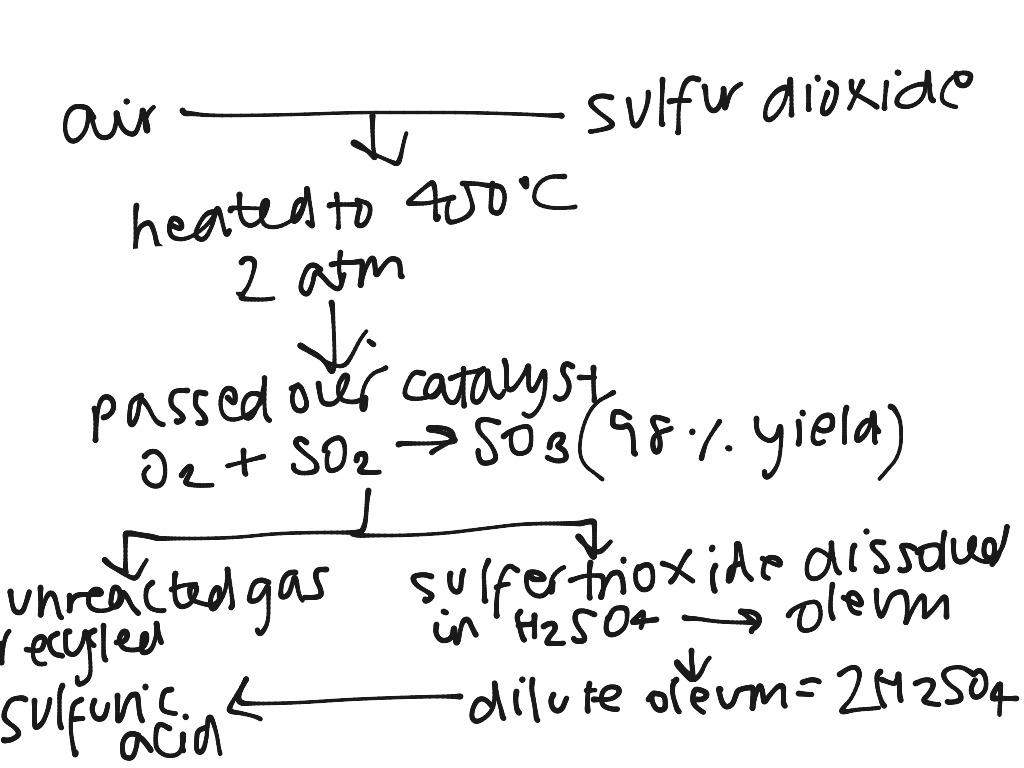 air sulfur dioxide
heated to 450°C
2 atm
passed over catalyst
O2 + SO2 → SO3 (98% yield)
unreacted gas
recycled
sulfer trioxide dissolved
in H2SO4 → oleum
dilute oleum = 2H2SO4
sulfuric
acid